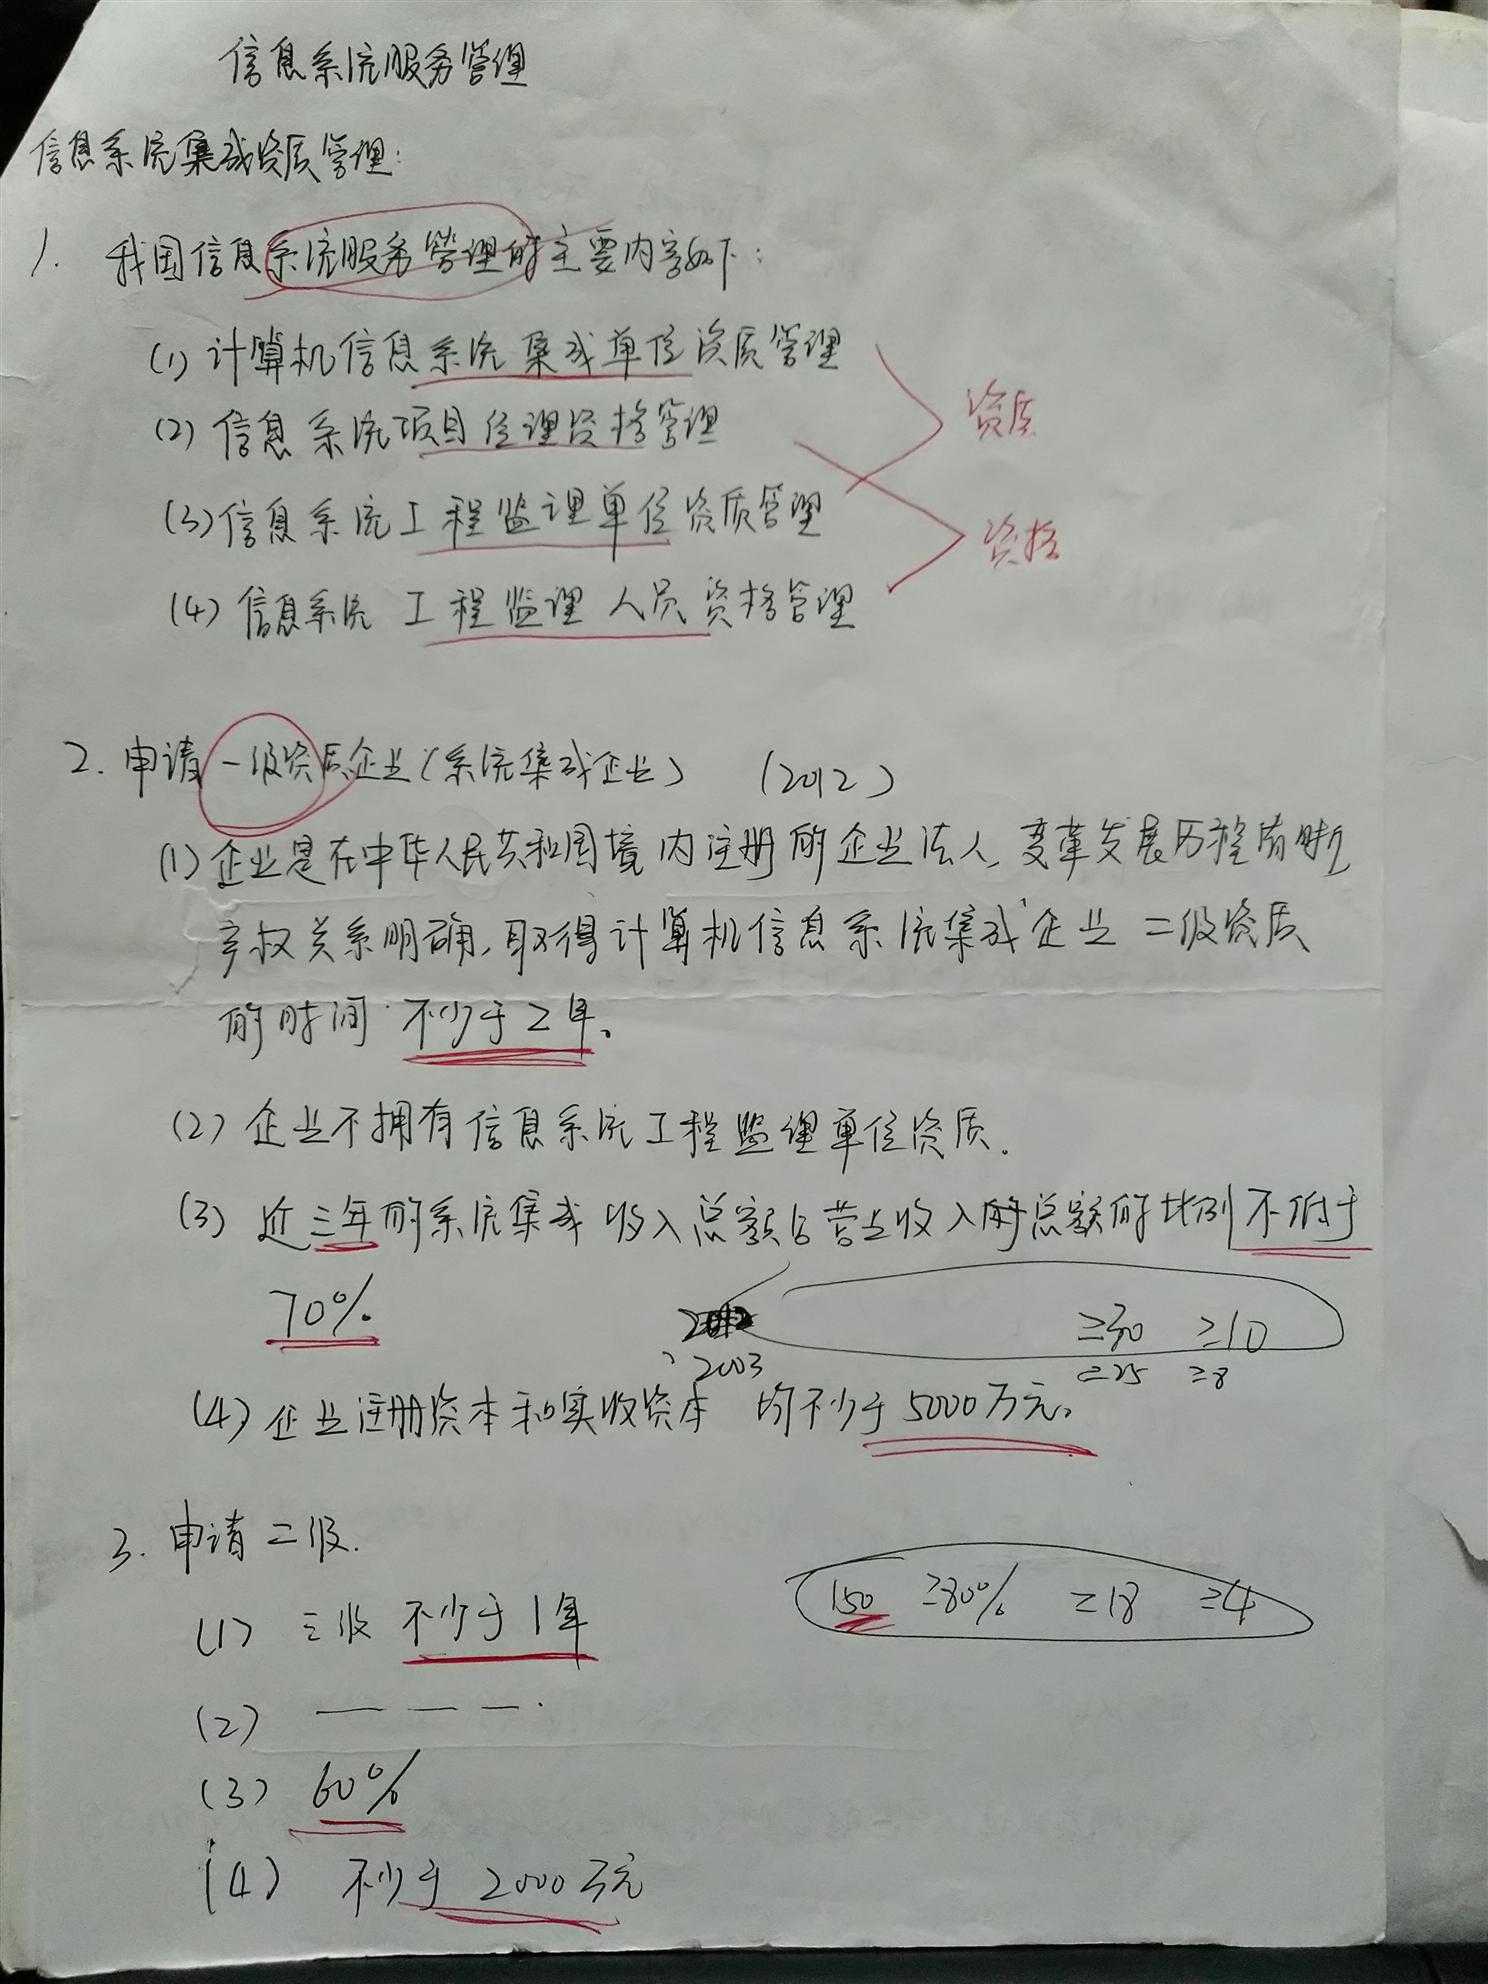 信息系统服务管理
信息系统集成资质管理:
1. 我国信息系统服务管理的主要内容如下:
(1) 计算机信息系统集成单位资质管理
(2) 信息系统项目经理资格管理
资质
(3) 信息系统工程监理单位资质管理
资格
(4) 信息系统 工程监理人员资格管理
2. 申请一级资质企业(系统集成企业) (2012)
(1) 企业是在中华人民共和国境内注册的企业法人, 变革发展历程清晰
产权关系明确, 取得计算机信息系统集成企业二级资质
的时间 不少于2年。
(2) 企业不拥有信息系统工程监理单位资质.
(3) 近三年的系统集成收入总额占营业收入的总额的比例不低于
70%
≥30 ≥10
2003 ≥25 ≥8
(4) 企业注册资本和实收资本 均不少于5000万元。
3. 申请二级.
150 ≥80% ≥18 ≥4
(1) 三级 不少于1年
(2) — — — .
(3) 60%
(4) 不少于 2000万元